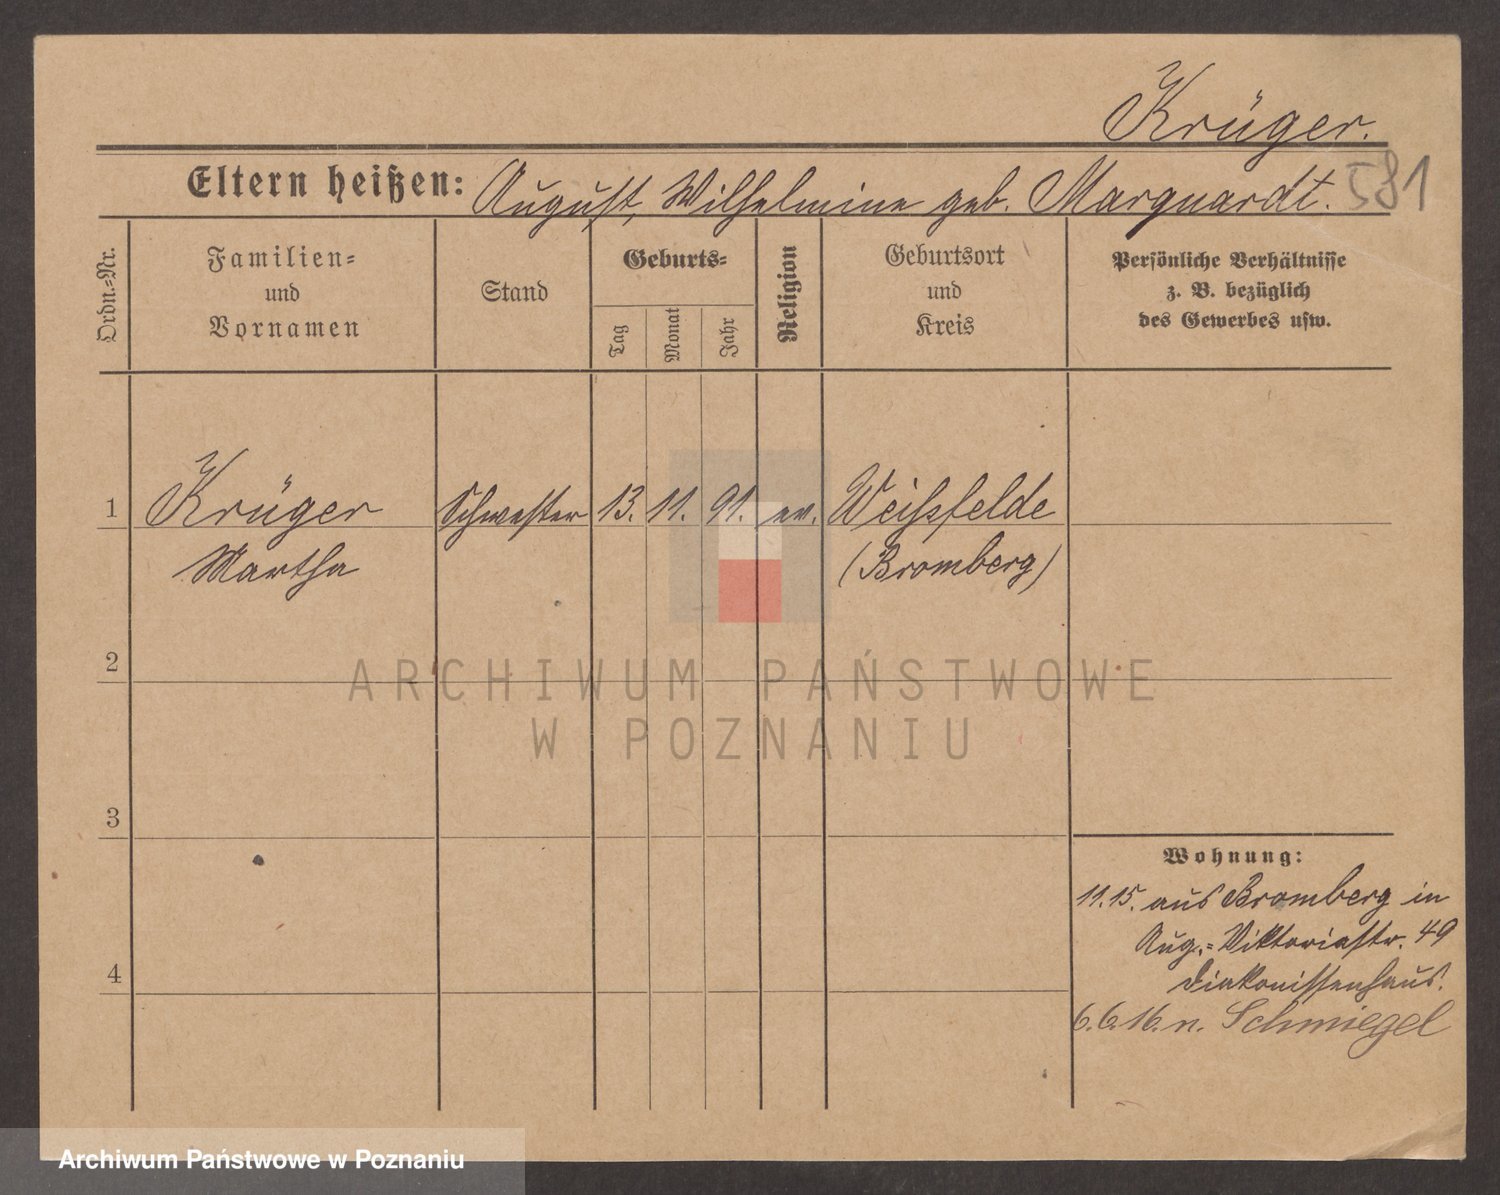 Krüger.
Eltern heißen: August, Wilhelmine geb. Marquardt. 581
Ordn.-Nr.
Familien-
und
Vornamen
Stand
Geburts-
Tag
Monat
Jahr
Religion
Geburtsort
und
Kreis
Persönliche Verhältnisse
z. B. bezüglich
des Gewerbes usw.
1 Krüger Schwester 13. 11. 91. ev. Weißfelde
Martha (Bromberg)
2
ARCHIWUM PAŃSTWOWE
W POZNANIU
3
Wohnung:
11.15. aus Bromberg in
Aug.-Viktoriastr. 49
Diakonissenhaus.
4
6.6.16. n. Schmiegel
Archiwum Państwowe w Poznaniu